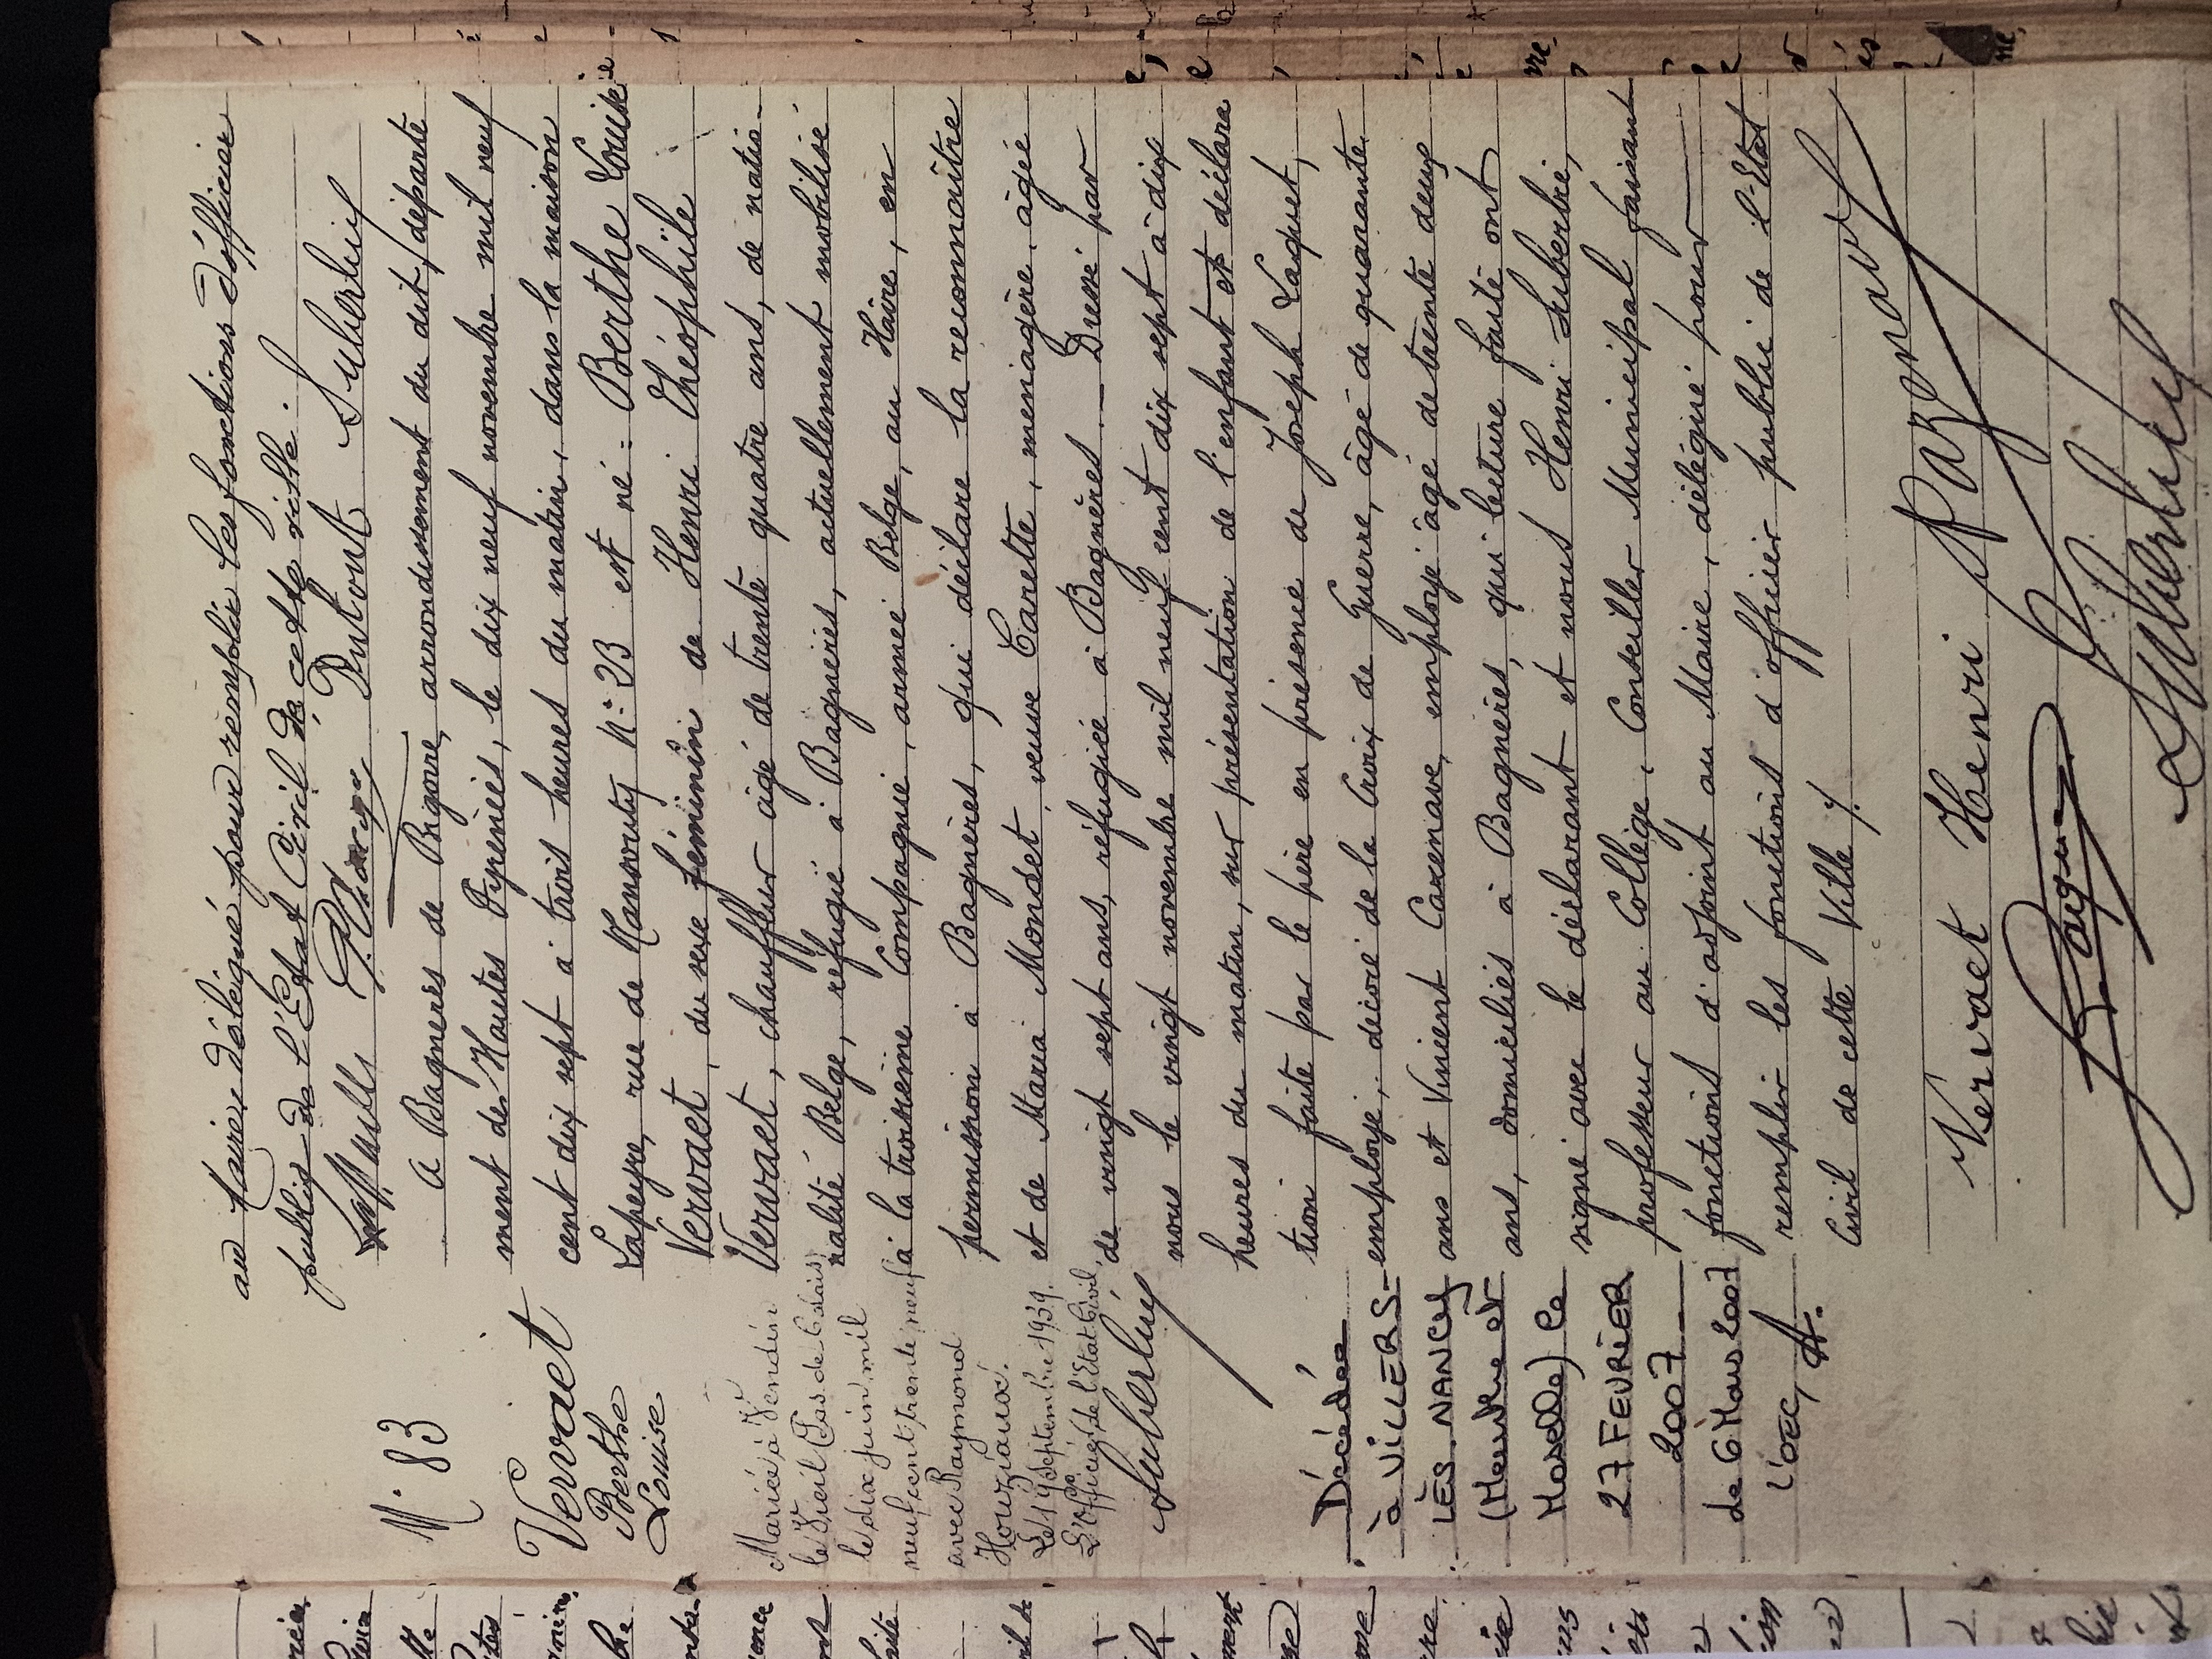 au Maire, délégué pour remplir les fonctions d'officier
public de l'Etat Civil de cette ville.
Dutout Suberbie
A Bagnères de Bigorre, arrondissement du dit, départe
ment des Hautes Pyrénées, le dix neuf novembre mil neuf
cent dix sept à trois heures du matin, dans la maison
Lapeyre, rue de Nansouty N° 23 est né : Berthe Louise
Vervaet, du sexe féminin de Henri Théophile
Vervaet, chauffeur âgé de trente quatre ans, de natio-
nalité Belge, réfugié à Bagnères, actuellement mobilisé
à la troisième Compagnie, armée Belge, au Hâvre, en
permission à Bagnères, qui déclare la reconnaître
et de Maria Mondet veuve Carette, ménagère, âgée
de vingt sept ans, réfugiée à Bagnères. _ Dressé par
nous le vingt novembre mil neuf cent dix sept à dix
heures du matin, sur présentation de l'enfant et déclara
tion faite par le père en présence de Joseph Laquet,
employé, décoré de la Croix de Guerre, âgé de quarante
ans et Vincent Cazenave, employé âgé de trente deux
ans, domiciliés à Bagnères, qui lecture faite ont
signé avec le déclarant et nous Henri Suberbie,
professeur au Collège, Conseiller Municipal faisant
fonctions d'adjoint au Maire, délégué pour
remplir les fonctions d'officier public de l'Etat
Civil de cette Ville ./.
Vervaet Henri Cazenave
Laquet
Suberbie
N. 83
Vervaet
Berthe
Louise
Mariée à Vendin
le Vieil (Pas de Calais)
le dix juin mil
neuf cent trente neuf
avec Raymond
Houziaux.
Le 19 Septembre 1939.
L'Officier de l'Etat Civil,
Suberbie
Décédée
à VILLERS-
LÈS-NANCY
(Meurthe et
Moselle) le
27 FEVRIER
2007
Le 6 Mars 2007
L'OEC,